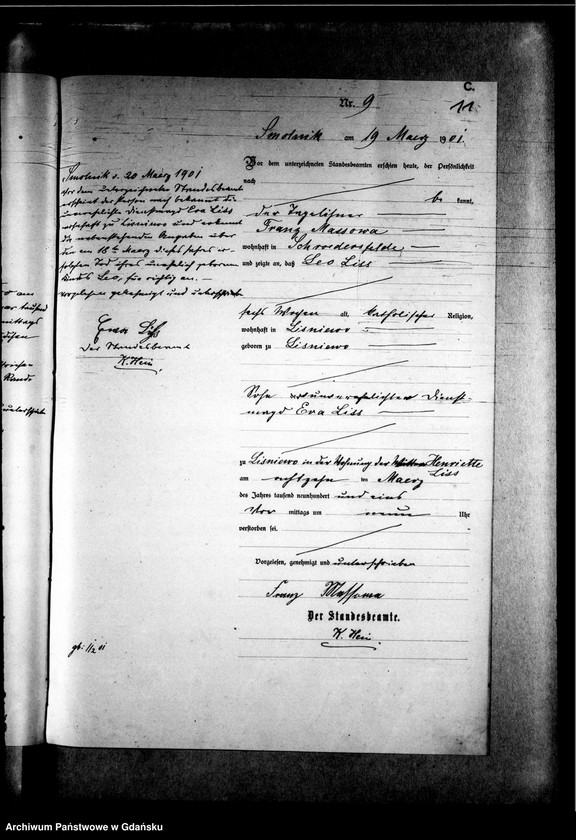 C.
11
Nr. 9
Smolnik am 19 Maerz 1901
Vor dem unterzeichneten Standesbeamten erschien heute, der Persönlichkeit
nach
be kannt,
der Tagelöhner
Franz Massowa
wohnhaft in Schroedersfelde
und zeigte an, daß Leo Liss
sechs Wochen alt, katholischer Religion,
wohnhaft in Lisniewo
geboren zu Lisniewo
Sohn der unverehelichten Dienst-
magd Eva Liss
zu Lisniewo in der Wohnung der Henriette
Liss
am achtzehn ten Maerz
des Jahres tausend neunhundert und eins
Vor mittags um neun Uhr
verstorben sei.
Vorgelesen, genehmigt und unterschrieben
Franz Massowa
Der Standesbeamte.
K. Hein
Smolnik d. 20 Maerz 1901
Vor dem unterzeichneten Standesbeamten
erschien der Person nach bekannt die
unverehelichte Dienstmagd Eva Liss
wohnhaft zu Lisniewo und erkennt
die nebenstehenden Angaben über
den am 18ten Maerz dieses Jahres er-
folgten Tod ihres unehelich geborenen
Kindes Leo, für richtig an.
vorgelesen genehmigt und unterschrieben
Eva Liss
Der Standesbeamte
K. Hein
Archiwum Państwowe w Gdańsku